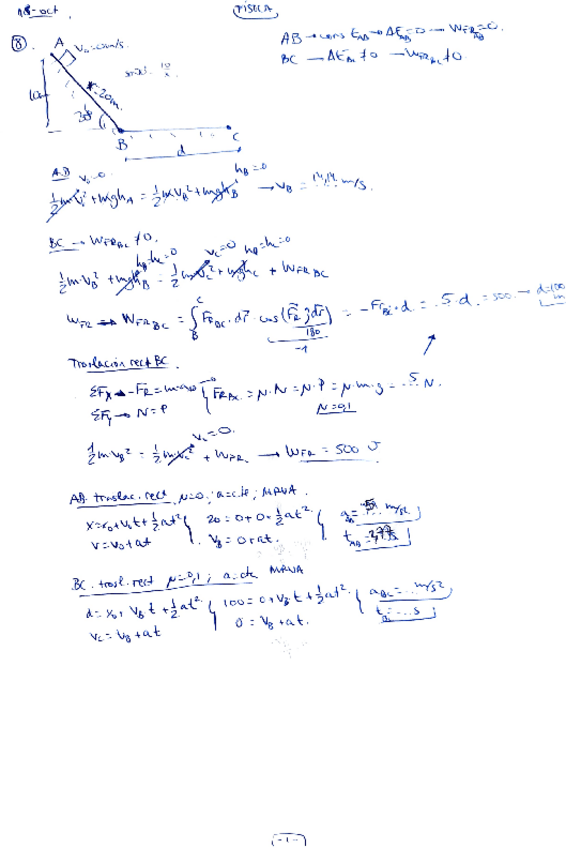 18-oct FÍSICA
AB → cons EAB → ΔEAB=0 → WFR AB=0.
⑧. A V0=0m/s. BC → ΔEBC≠0 → WFR BC≠0.
10m 20m.
30º
B C
d
AB V0=0 hB=0
1/2 mV0² + mghA = 1/2 mVB² + mghB → VB = 14,14 m/s.
BC → WFR BC ≠0.
hB=hC=0 VC=0 hB=hC=0
1/2 m·VB² + mghB = 1/2 mVC² + mghC + WFR BC
WFR → WFR BC = ∫BC FR BC·dr· cos(FR;dr) = -FrBC·d = -5·d = 500 → d=100 m
180
-1
Traslación rect BC.
ΣFx → -FR = m·a } FR BC = μ·N = μ·P = μ·m·g = 5 N.
ΣFy → N = P μ=0,1
VC=0.
1/2 mVB² = 1/2 mVC² + WFR → WFR = 500 J
AB traslac. rect, μ=0, a=cte; MRUA.
x=x0+V0t+1/2at² } 20=0+0+1/2at² } aAB=5 m/s2
v=v0+at VB=0+at. tAB= s
BC trasl. rect μ=0,1; a=cte MRUA
d=x0+VBt+1/2at² } 100=0+VBt+1/2at² } aBC=... m/s2
VC=VB+at 0=VB+at. tBC=...s
-1-